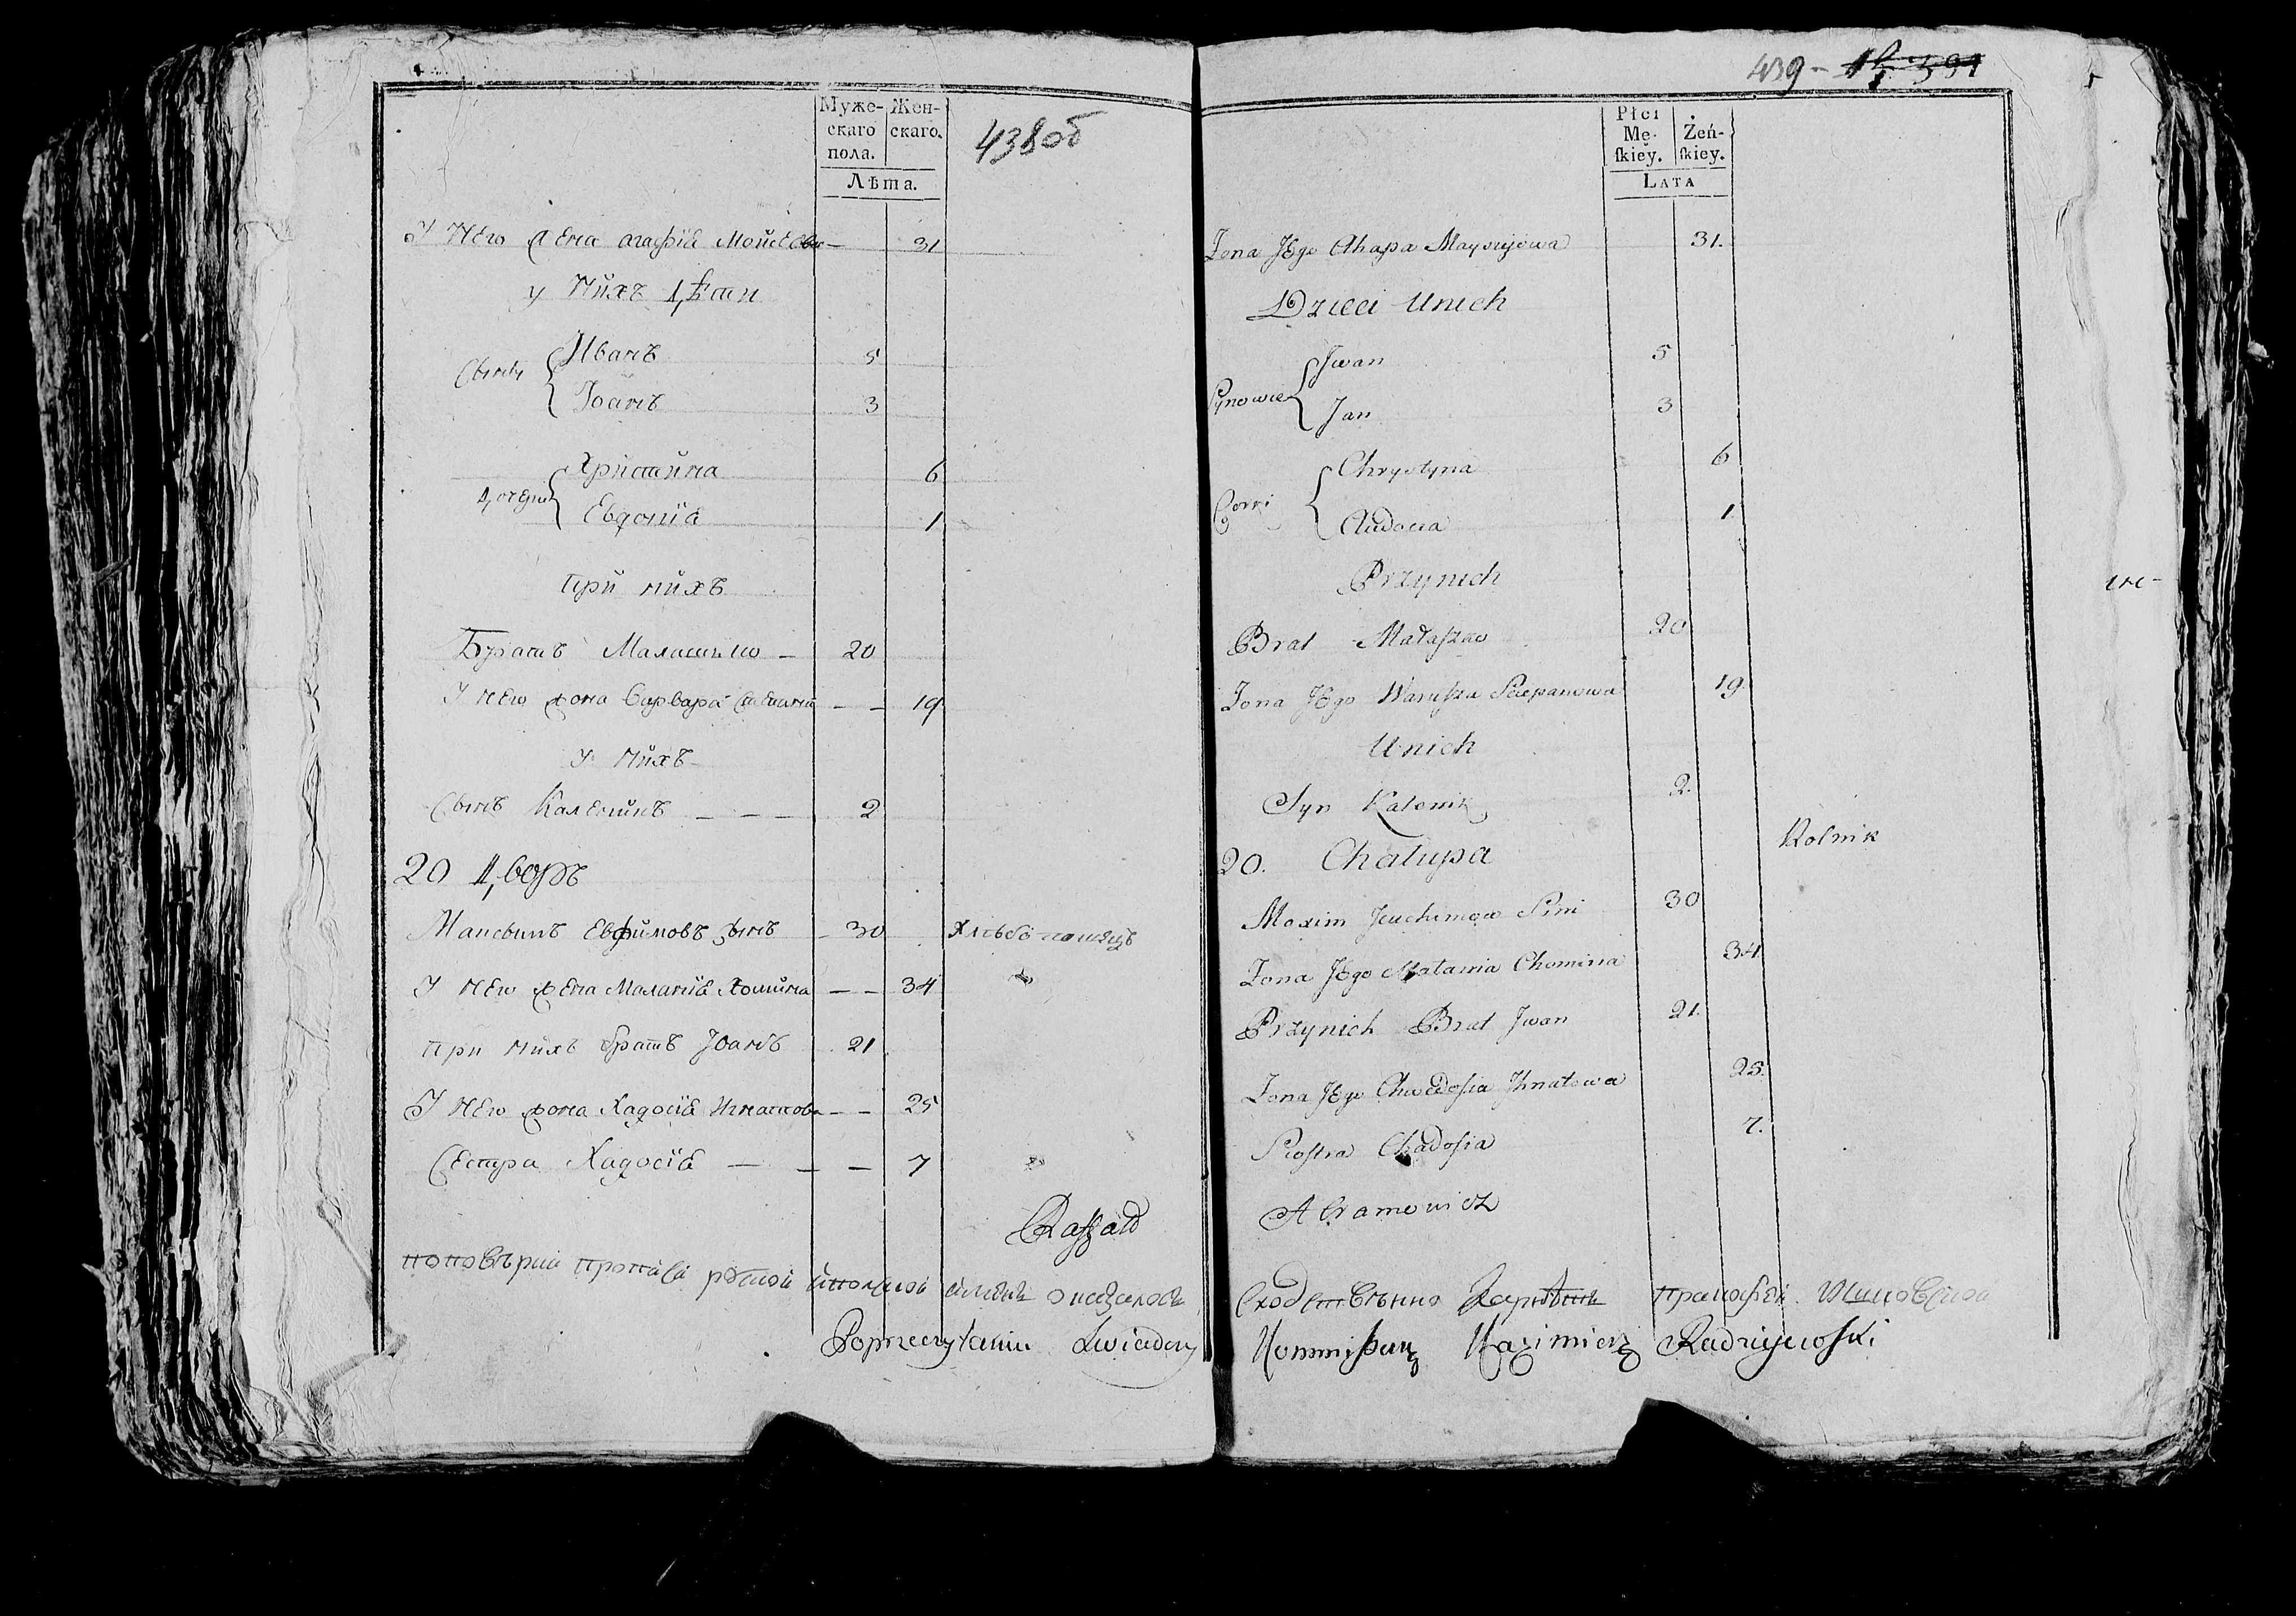 Муже-
скаго
пола.
Жен-
скаго.
Лѣта.
438об
У Него Жена Агафія Мойсеева 31
у Нихъ Дѣти
Сыны
Иванъ 5
Іоанъ 3
Дочери
Христина 6
Евдокія 1
При нихъ
Братъ 20
У него жена Варвара 19
У нихъ
Сынъ Каленикъ 2
20 Дворъ
Максимъ Евфимовъ Сынъ 30 Хлѣбопашецъ
У него жена Маланія Хомина 34
при нихъ братъ Іоанъ 21
У него жона Хадосія Игнатова 25
Сестра Хадосія 7
Poprzeczytaniu Zwiadczy
439 - 391
Płci
Mę-
ſkiey.
Żeń-
ſkiey.
Lata
Zona Jego Ahapa 31.
Dzieci Unich
Synowie
Jwan 5
Jan 3
Corki
Chrystyna 6
Audocia 1
Przynich
Brat Małaſzko 20
Zona Jego Waruſza Sciepanowa 19.
Unich
Syn Kalenik 2.
20. Chalupa Rolnik
Maxim Jeuchimow Sini 30
Zona Jego Małania Chomina 34
Przynich Brat Jwan 21.
Zona Jego Chwedoſia Jhnatowa 25.
Sioſtra Chadoſia 7.
Abramowicz
Kommiſsarz Kazimierz Radziejewſki